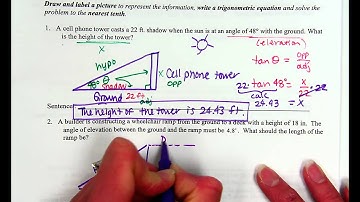 Draw and label a picture to represent the information, write a trigonometric equation and solve the
problem to the nearest tenth.
1. A cell phone tower casts a 22 ft. shadow when the sun is at an angle of 48° with the ground. What
is the height of the tower?
(elevation)
x
hypo
x
Cell phone tower
opp
48° θ
shadow
Ground 22 ft
adj
tan θ = opp
adj
22· tan 48° = x ·22
22
calc
24.43 = x
Sentence:
The height of the tower is 24.43 ft.
2. A builder is constructing a wheelchair ramp from the ground to a deck with a height of 18 in. The
angle of elevation between the ground and the ramp must be 4.8°. What should the length of the
ramp be?